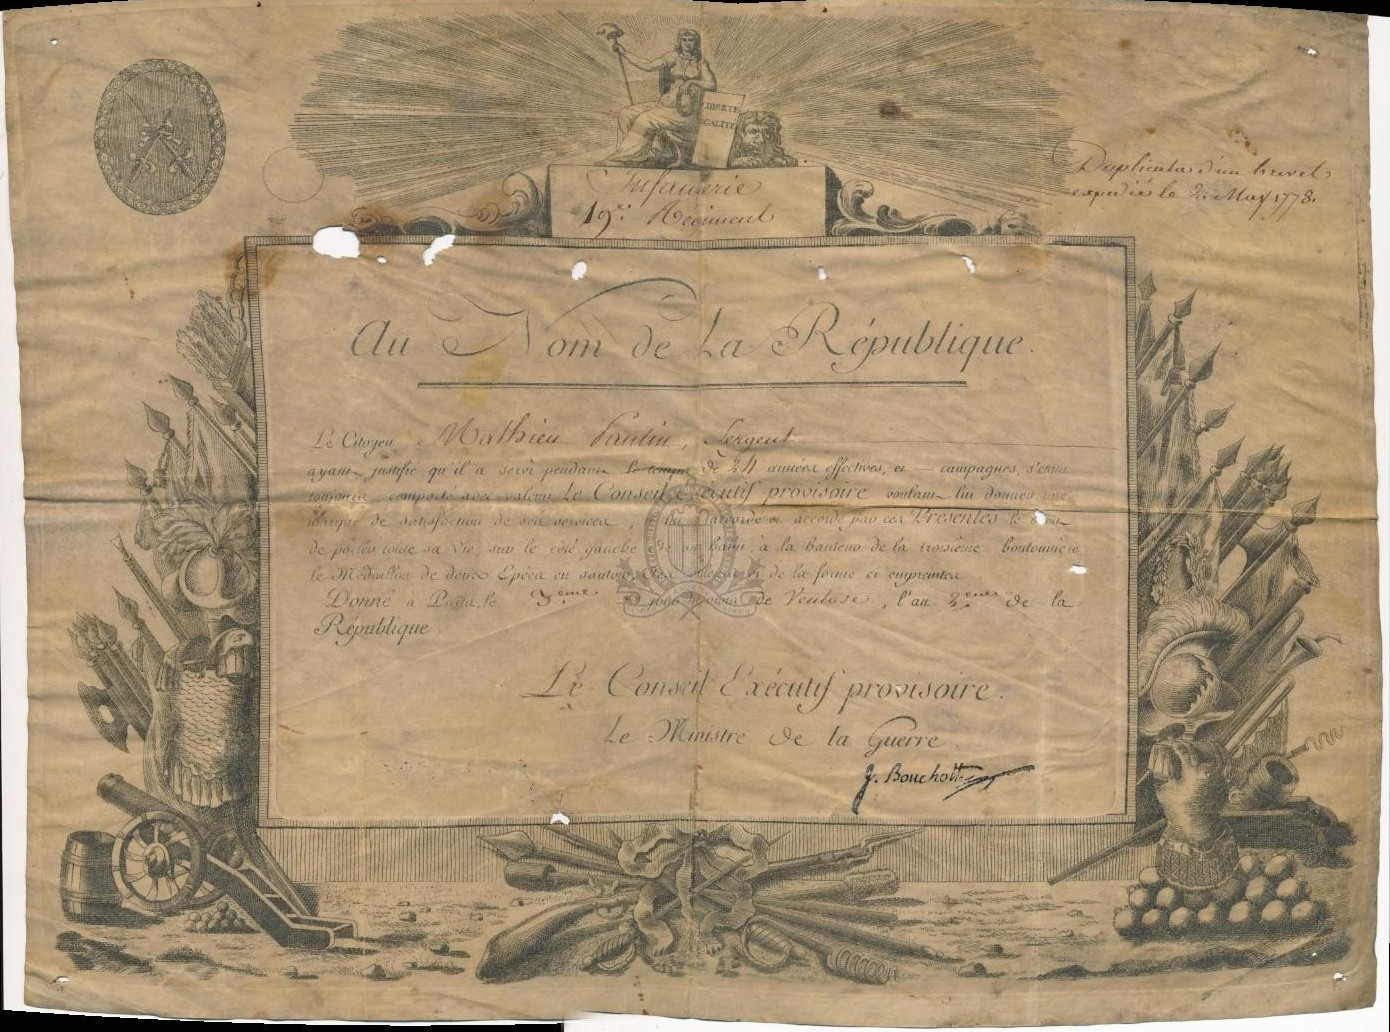 LIBERTÉ
ÉGALITÉ
Infanterie
19e. Regiment
Duplicata d'un brevet
expedié le 2. May 1778.
Au Nom de La République.
Le Citoyen Mathieu Pautin, Sergent
ayant justifié qu'il a servi pendant le temps de 24 années effectives, et — campagnes, s'etant
toujours comporté avec valeur Le Conseil exécutif provisoire voulant lui donner une
marque de satisfaction de ses services, lui accordé et accorde par ces Présentes le
de porter toute sa vie, sur le côté gauche de son habit, à la hauteur de la troisième boutonnière
le Médaillon de deux Epées en sautoir, de la forme ci empreinte.
Donné à Paris le 3.eme jour du mois de Ventose, l'an 2.eme de la
République.
Le Conseil Exécutif provisoire.
Le Ministre de la Guerre.
J. Bouchotte